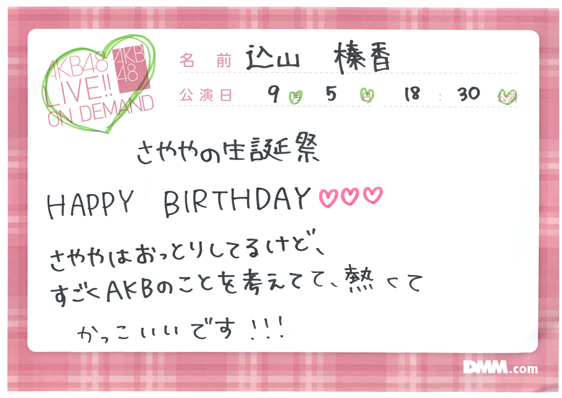 AKB48
LIVE!!
ON DEMAND
AKB
48
名前 込山 榛香
公演日 9月 5日 18:30 公演
さややの生誕祭
HAPPY BIRTHDAY♡♡♡
さややはおっとりしてるけど、
すごくAKBのことを考えてて、熱くて
かっこいいです!!!
DMM.com